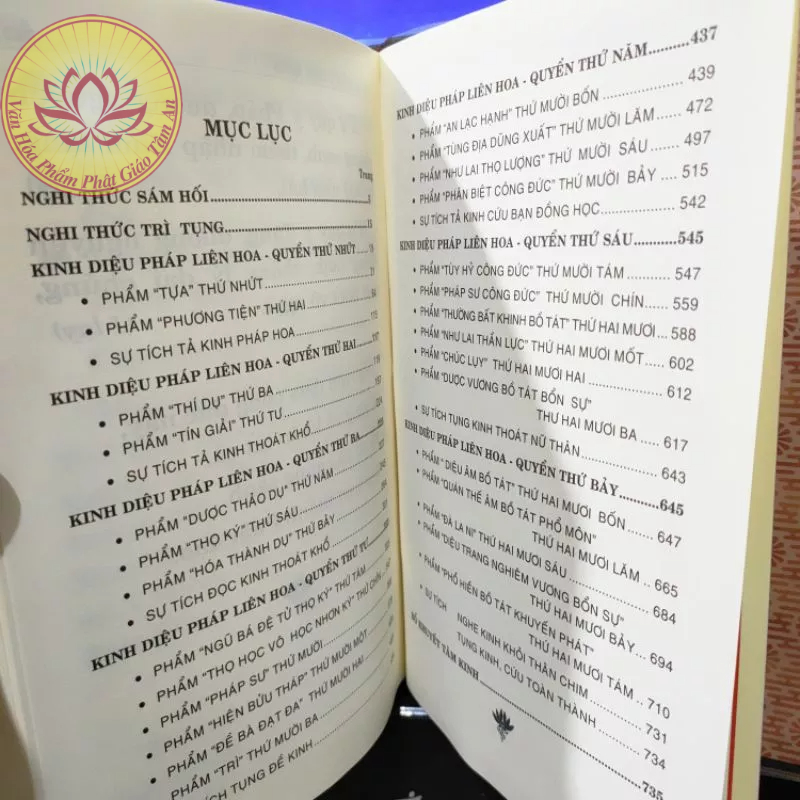 Văn Hóa Phẩm Phật Giáo Tâm An
MỤC LỤC
Trang
NGHI THỨC SÁM HỐI
NGHI THỨC TRÌ TỤNG
KINH DIỆU PHÁP LIÊN HOA - QUYỂN THỨ NHỨT
• PHẨM "TỰA" THỨ NHỨT
• PHẨM "PHƯƠNG TIỆN" THỨ HAI
• SỰ TÍCH TẢ KINH PHÁP HOA
KINH DIỆU PHÁP LIÊN HOA - QUYỂN THỨ HAI
• PHẨM "THÍ DỤ" THỨ BA
• PHẨM "TÍN GIẢI" THỨ TƯ
• SỰ TÍCH TẢ KINH THOÁT KHỔ
KINH DIỆU PHÁP LIÊN HOA - QUYỂN THỨ BA
• PHẨM "DƯỢC THẢO DỤ" THỨ NĂM
• PHẨM "THỌ KÝ" THỨ SÁU
• PHẨM "HÓA THÀNH DỤ" THỨ BẢY
• SỰ TÍCH ĐỌC KINH THOÁT KHỔ
KINH DIỆU PHÁP LIÊN HOA - QUYỂN THỨ TƯ
• PHẨM "NGŨ BÁ ĐỆ TỬ THỌ KÝ" THỨ TÁM
• PHẨM "THỌ HỌC VÔ HỌC NHƠN KÝ" THỨ CHÍN
• PHẨM "PHÁP SƯ" THỨ MƯỜI
• PHẨM "HIỆN BỬU THÁP" THỨ MƯỜI MỘT
• PHẨM "ĐỀ BÀ ĐẠT ĐA" THỨ MƯỜI HAI
PHẨM "TRÌ" THỨ MƯỜI BA
TÍCH TỤNG ĐỀ KINH
KINH DIỆU PHÁP LIÊN HOA - QUYỂN THỨ NĂM..........437
• PHẨM "AN LẠC HẠNH" THỨ MƯỜI BỐN ........ 439
• PHẨM "TÙNG ĐỊA DŨNG XUẤT" THỨ MƯỜI LĂM .... 472
• PHẨM "NHƯ LAI THỌ LƯỢNG" THỨ MƯỜI SÁU ..... 497
• PHẨM "PHÂN BIỆT CÔNG ĐỨC" THỨ MƯỜI BẢY .... 515
• SỰ TÍCH TẢ KINH CỨU BẠN ĐỒNG HỌC ........ 542
KINH DIỆU PHÁP LIÊN HOA - QUYỂN THỨ SÁU..........545
• PHẨM "TÙY HỶ CÔNG ĐỨC" THỨ MƯỜI TÁM ...... 547
• PHẨM "PHÁP SƯ CÔNG ĐỨC" THỨ MƯỜI CHÍN .... 559
• PHẨM "THƯỜNG BẤT KHINH BỒ TÁT" THỨ HAI MƯƠI .. 588
• PHẨM "NHƯ LAI THẦN LỰC" THỨ HAI MƯƠI MỐT .... 602
• PHẨM "CHÚC LỤY" THỨ HAI MƯƠI HAI ........ 612
• PHẨM "DƯỢC VƯƠNG BỒ TÁT BỔN SỰ"
THỨ HAI MƯƠI BA ..... 617
• SỰ TÍCH TỤNG KINH THOÁT NỮ THÂN ....... 643
KINH DIỆU PHÁP LIÊN HOA - QUYỂN THỨ BẢY ........645
• PHẨM "DIỆU ÂM BỒ TÁT" THỨ HAI MƯƠI BỐN ..... 647
• PHẨM "QUÁN THẾ ÂM BỒ TÁT PHỔ MÔN"
THỨ HAI MƯƠI LĂM .. 665
• PHẨM "ĐÀ LA NI" THỨ HAI MƯƠI SÁU ........ 684
• PHẨM "DIỆU TRANG NGHIÊM VƯƠNG BỔN SỰ"
THỨ HAI MƯƠI BẢY .... 694
• PHẨM "PHỔ HIỀN BỒ TÁT KHUYẾN PHÁT"
THỨ HAI MƯƠI TÁM .... 710
• SỰ TÍCH NGHE KINH KHỎI THÂN CHIM ...... 731
TỤNG KINH, CỨU TOÀN THÀNH ..... 734
BỔ KHUYẾT TÂM KINH ........ 735